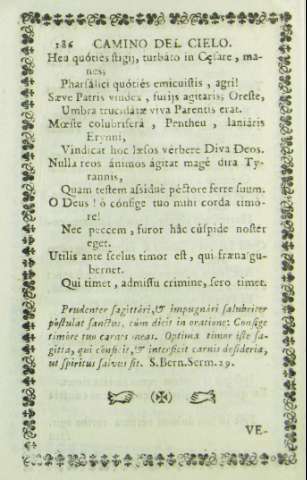 186 CAMINO DEL CIELO.
Heu quóties stigij, turbato in Cęsare, ma-
nes;
Pharsálici quótiès emicuistis, agri!
Sæve Patris vindex, furijs agitaris, Oreste,
Umbra trucidatæ viva Parentis erat.
Mœste colubriferá, Pentheu, laniáris
Erynni,
Vindicat hoc læsos verbere Diva Deos.
Nulla reos ánimos ágitat magè dira Ty-
rannis,
Quam testem assiduè péctore ferre suum.
O Deus! ò cónfige tuo mihi corda timó-
re!
Nec peccem, furor hâc cúspide noster
eget.
Utilis ante scelus timor est, qui fræna gu-
bernet.
Qui timet, admissu crimine, sero timet.
Prudenter sagittári, & impugnári salubriter
póstulat sanctus, cùm dicit in oratione: Confige
timóre tuo carnes meas. Optima timor iste sa-
gitta, qui cónficit, & intérficit carnis desidéria,
ut spíritus salvus sit. S. Bern. Serm. 29.
VE-